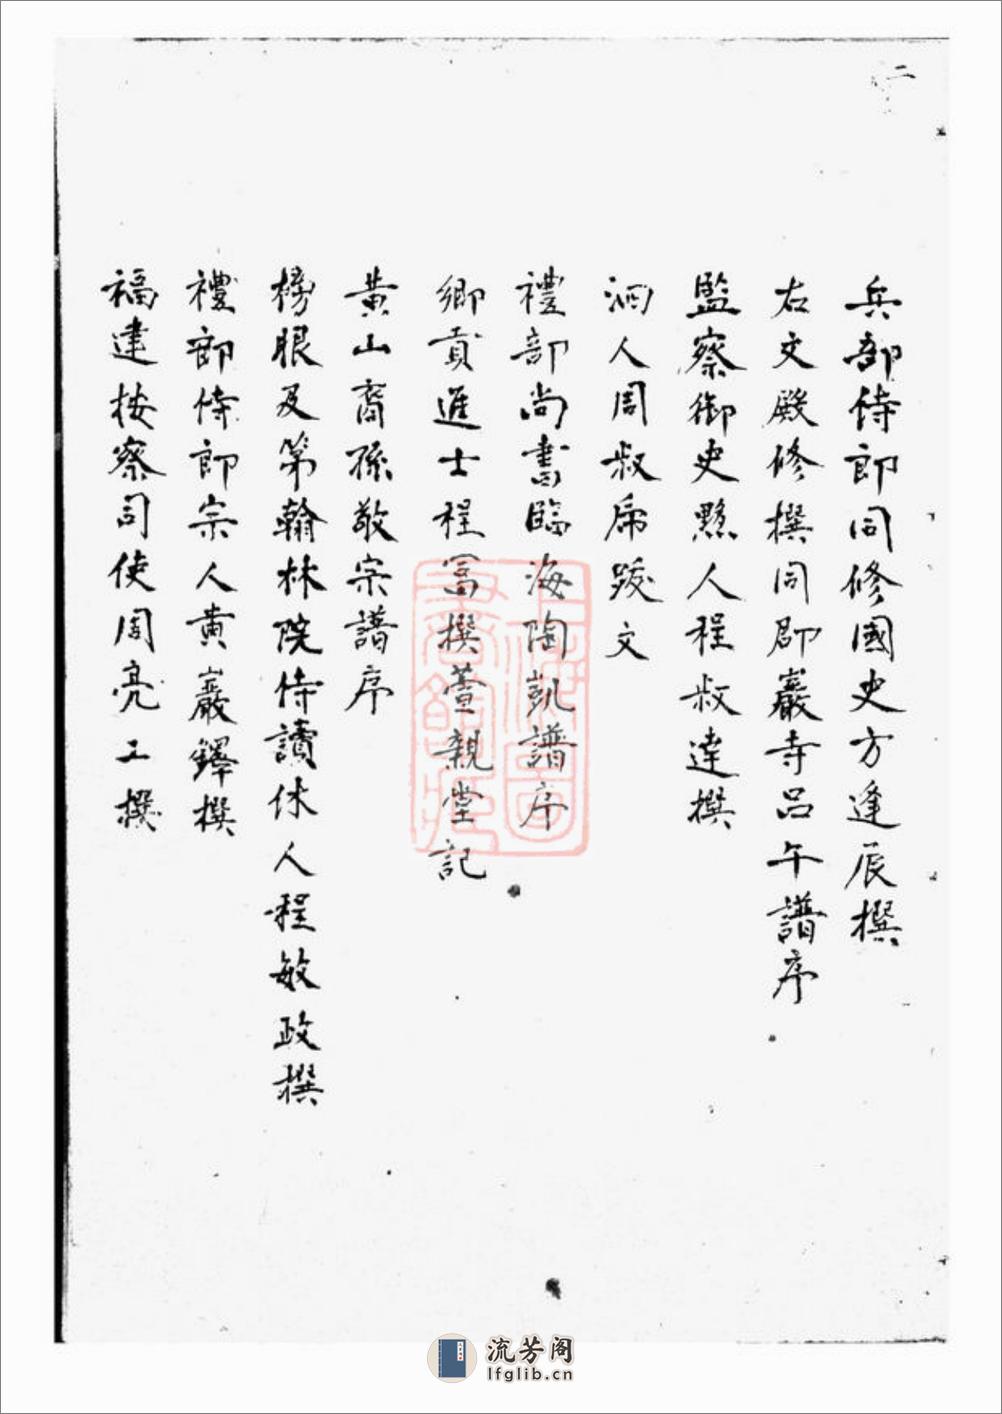 二
兵部侍郎同修國史方逢辰撰
右文殿修撰同郡巖寺呂午譜序
監察御史黟人程叔達撰
泗人周叔席跋文
禮部尚書臨海陶凱譜序
鄉貢進士程富撰萱親堂記
黃山裔孫敬宗譜序
榜眼及第翰林院侍讀休人程敏政撰
禮部侍郎宗人黃巖鐸撰
福建按察司使周亮工撰
上海圖書館藏
流芳阁
lfglib.cn